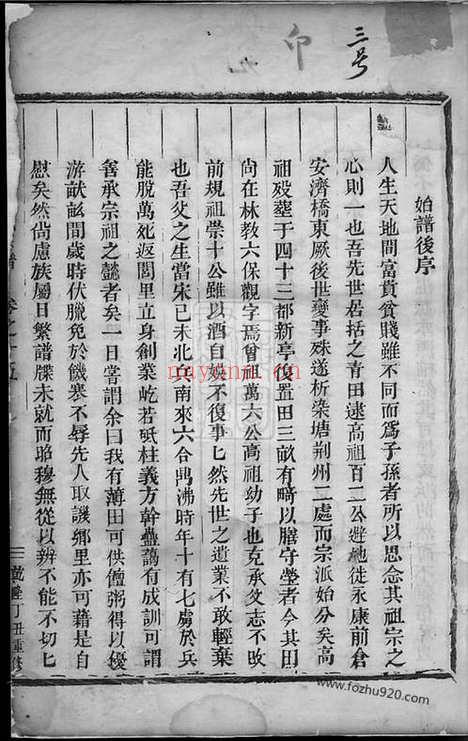 三号
印
九
始譜後序
人生天地間富貴貧賤雖不同而爲子孫者所以思念其祖宗之
心則一也吾先世居括之青田逮高祖百二公避地徙永康前倉
安濟橋東厥後世變事殊遂析染塘荆州二處而宗派始分矣高
祖歿葬于四十三都新亭復置田三畝有畸以贍守塋者今其田
尚在林教六保觀字焉曾祖萬六公高祖幼子也克承父志不敢改
前規祖崇十公雖以酒自娛不復事亡然先世之遺業不敢輕棄
也吾父之生當宋己未北兵南來六合鼎沸時年十有七虜於兵
能脫萬死返閭里立身創業屹若砥柱義方幹蠱藹有成訓可謂
善承宗祖之懿者矣一日嘗謂余曰我有薄田可供饘粥得以優
游畎畝間歲時伏臘免於饑寒不辱先人取譏鄉里亦可藉是自
慰矣然尚慮族屬日繁譜牒未就而昭穆無從以辨不能不切亡
卷之十五
三 戴 丁丑重修
mayanan.cn
www.fozhu920.com